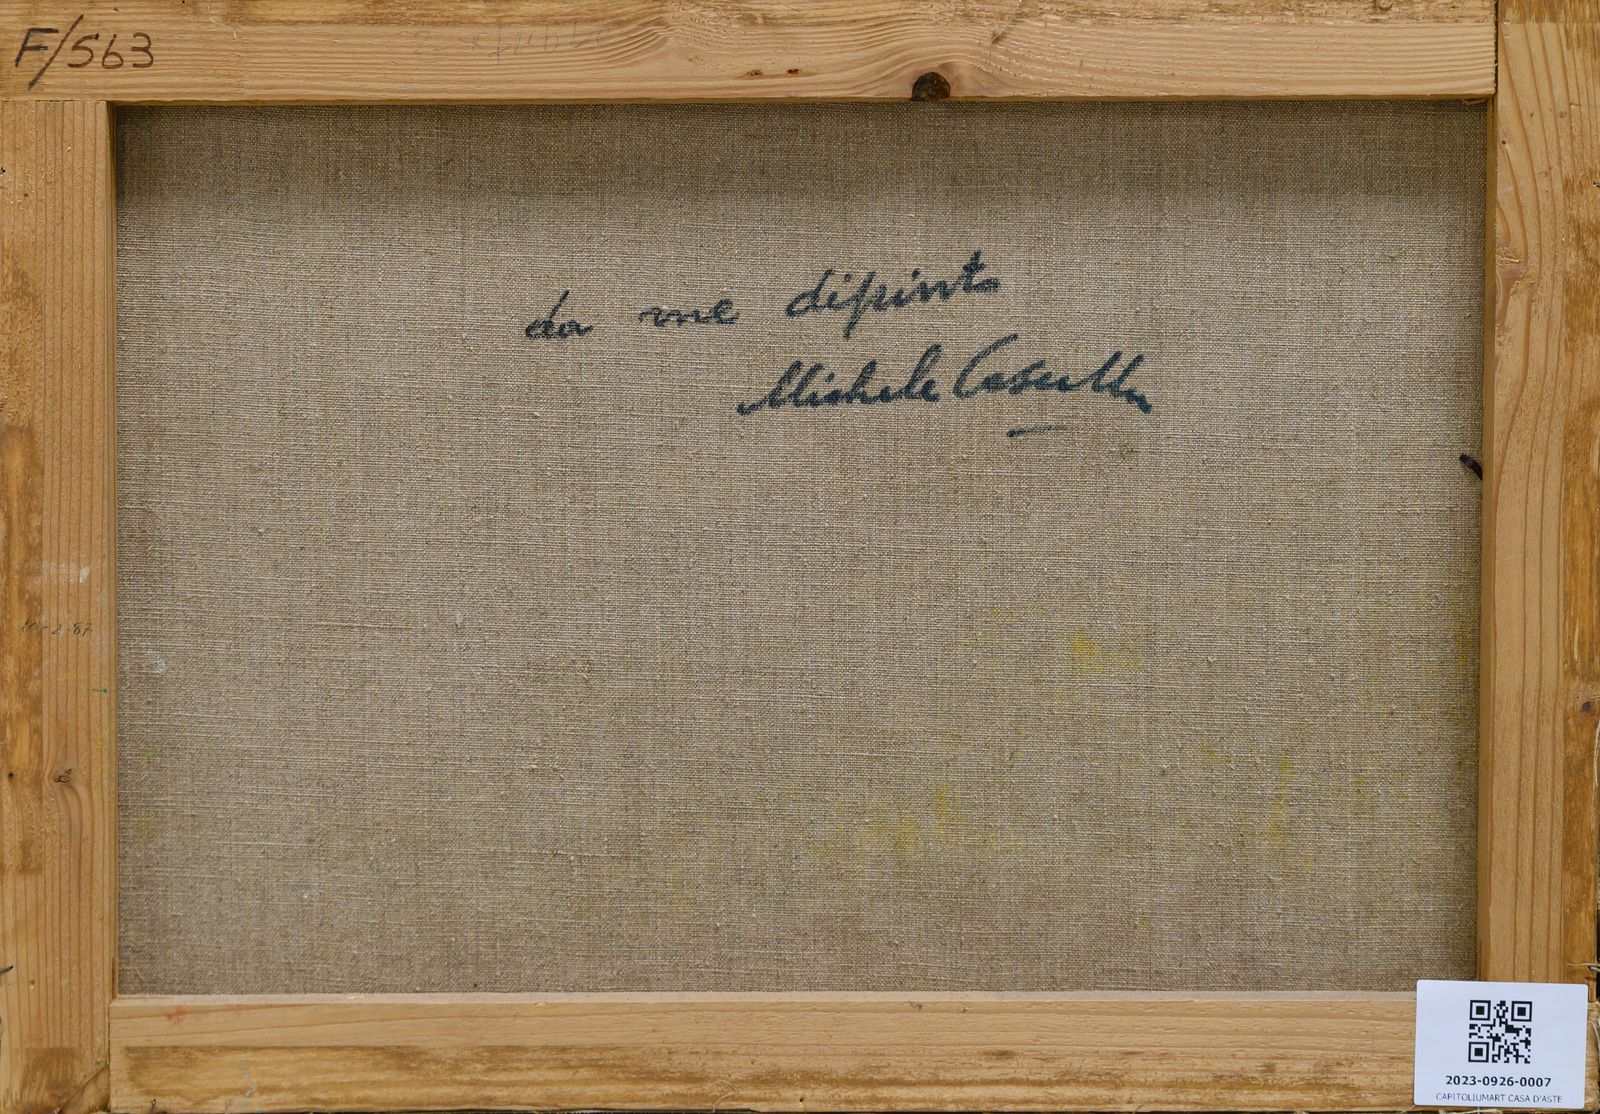 F/563
da me dipinto
Michele Cascella
-2-87
2023-0926-0007
CAPITOLIUMART CASA D'ASTE